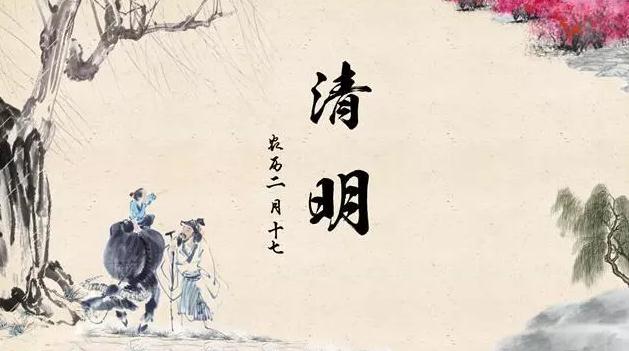 清明
农历二月十七